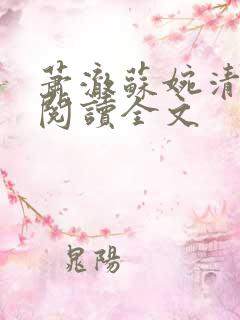 蕭澈蘇婉清
閱讀全文
晁陽